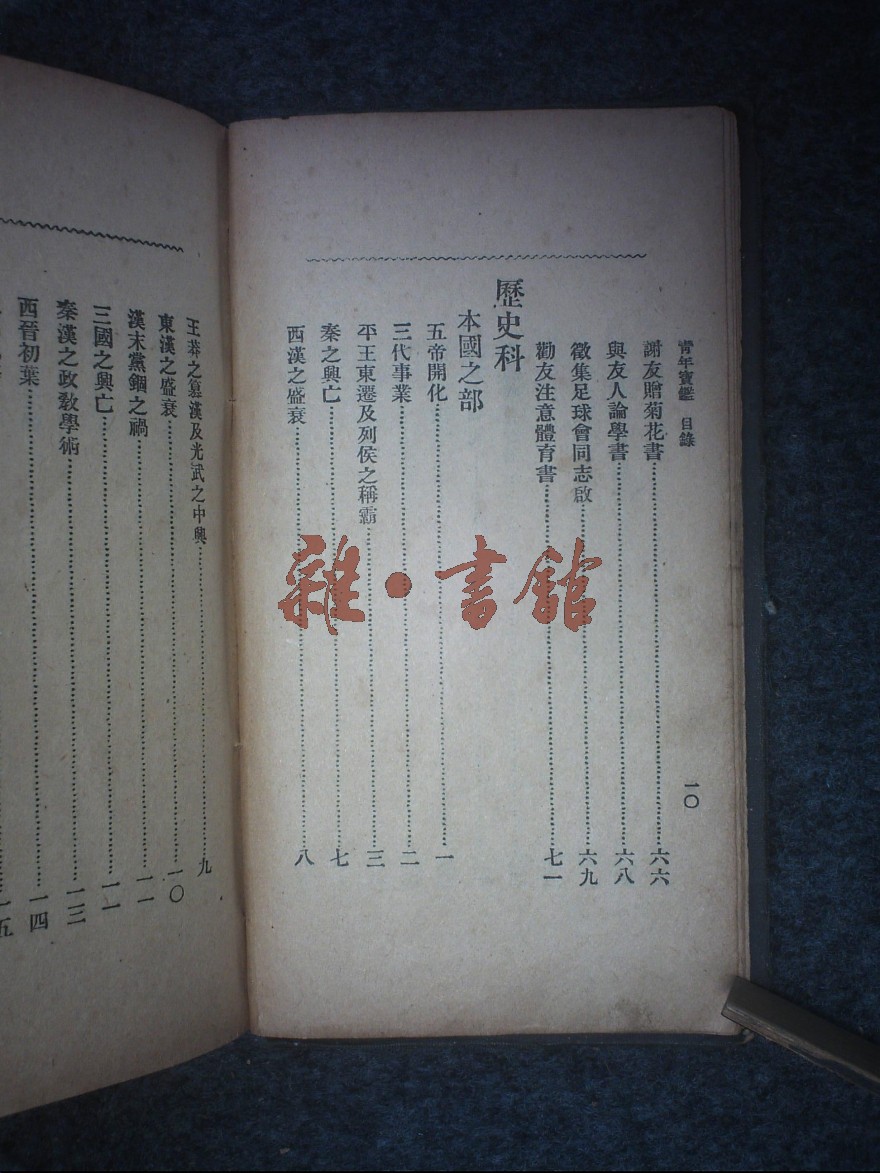 青年寶鑑 目錄
一〇
謝友贈菊花書 六六
與友人論學書 六八
徵集足球會同志啟 六九
勸友注意體育書 七一
歷史科
本國之部
五帝開化 一
三代事業 二
平王東遷及列侯之稱霸 三
秦之興亡 七
西漢之盛衰 八
王莽之篡漢及光武之中興 九
東漢之盛衰 一〇
漢末黨錮之禍 一一
三國之興亡 一一
秦漢之政教學術 一三
西晉初葉 一四
一五
雜·書館